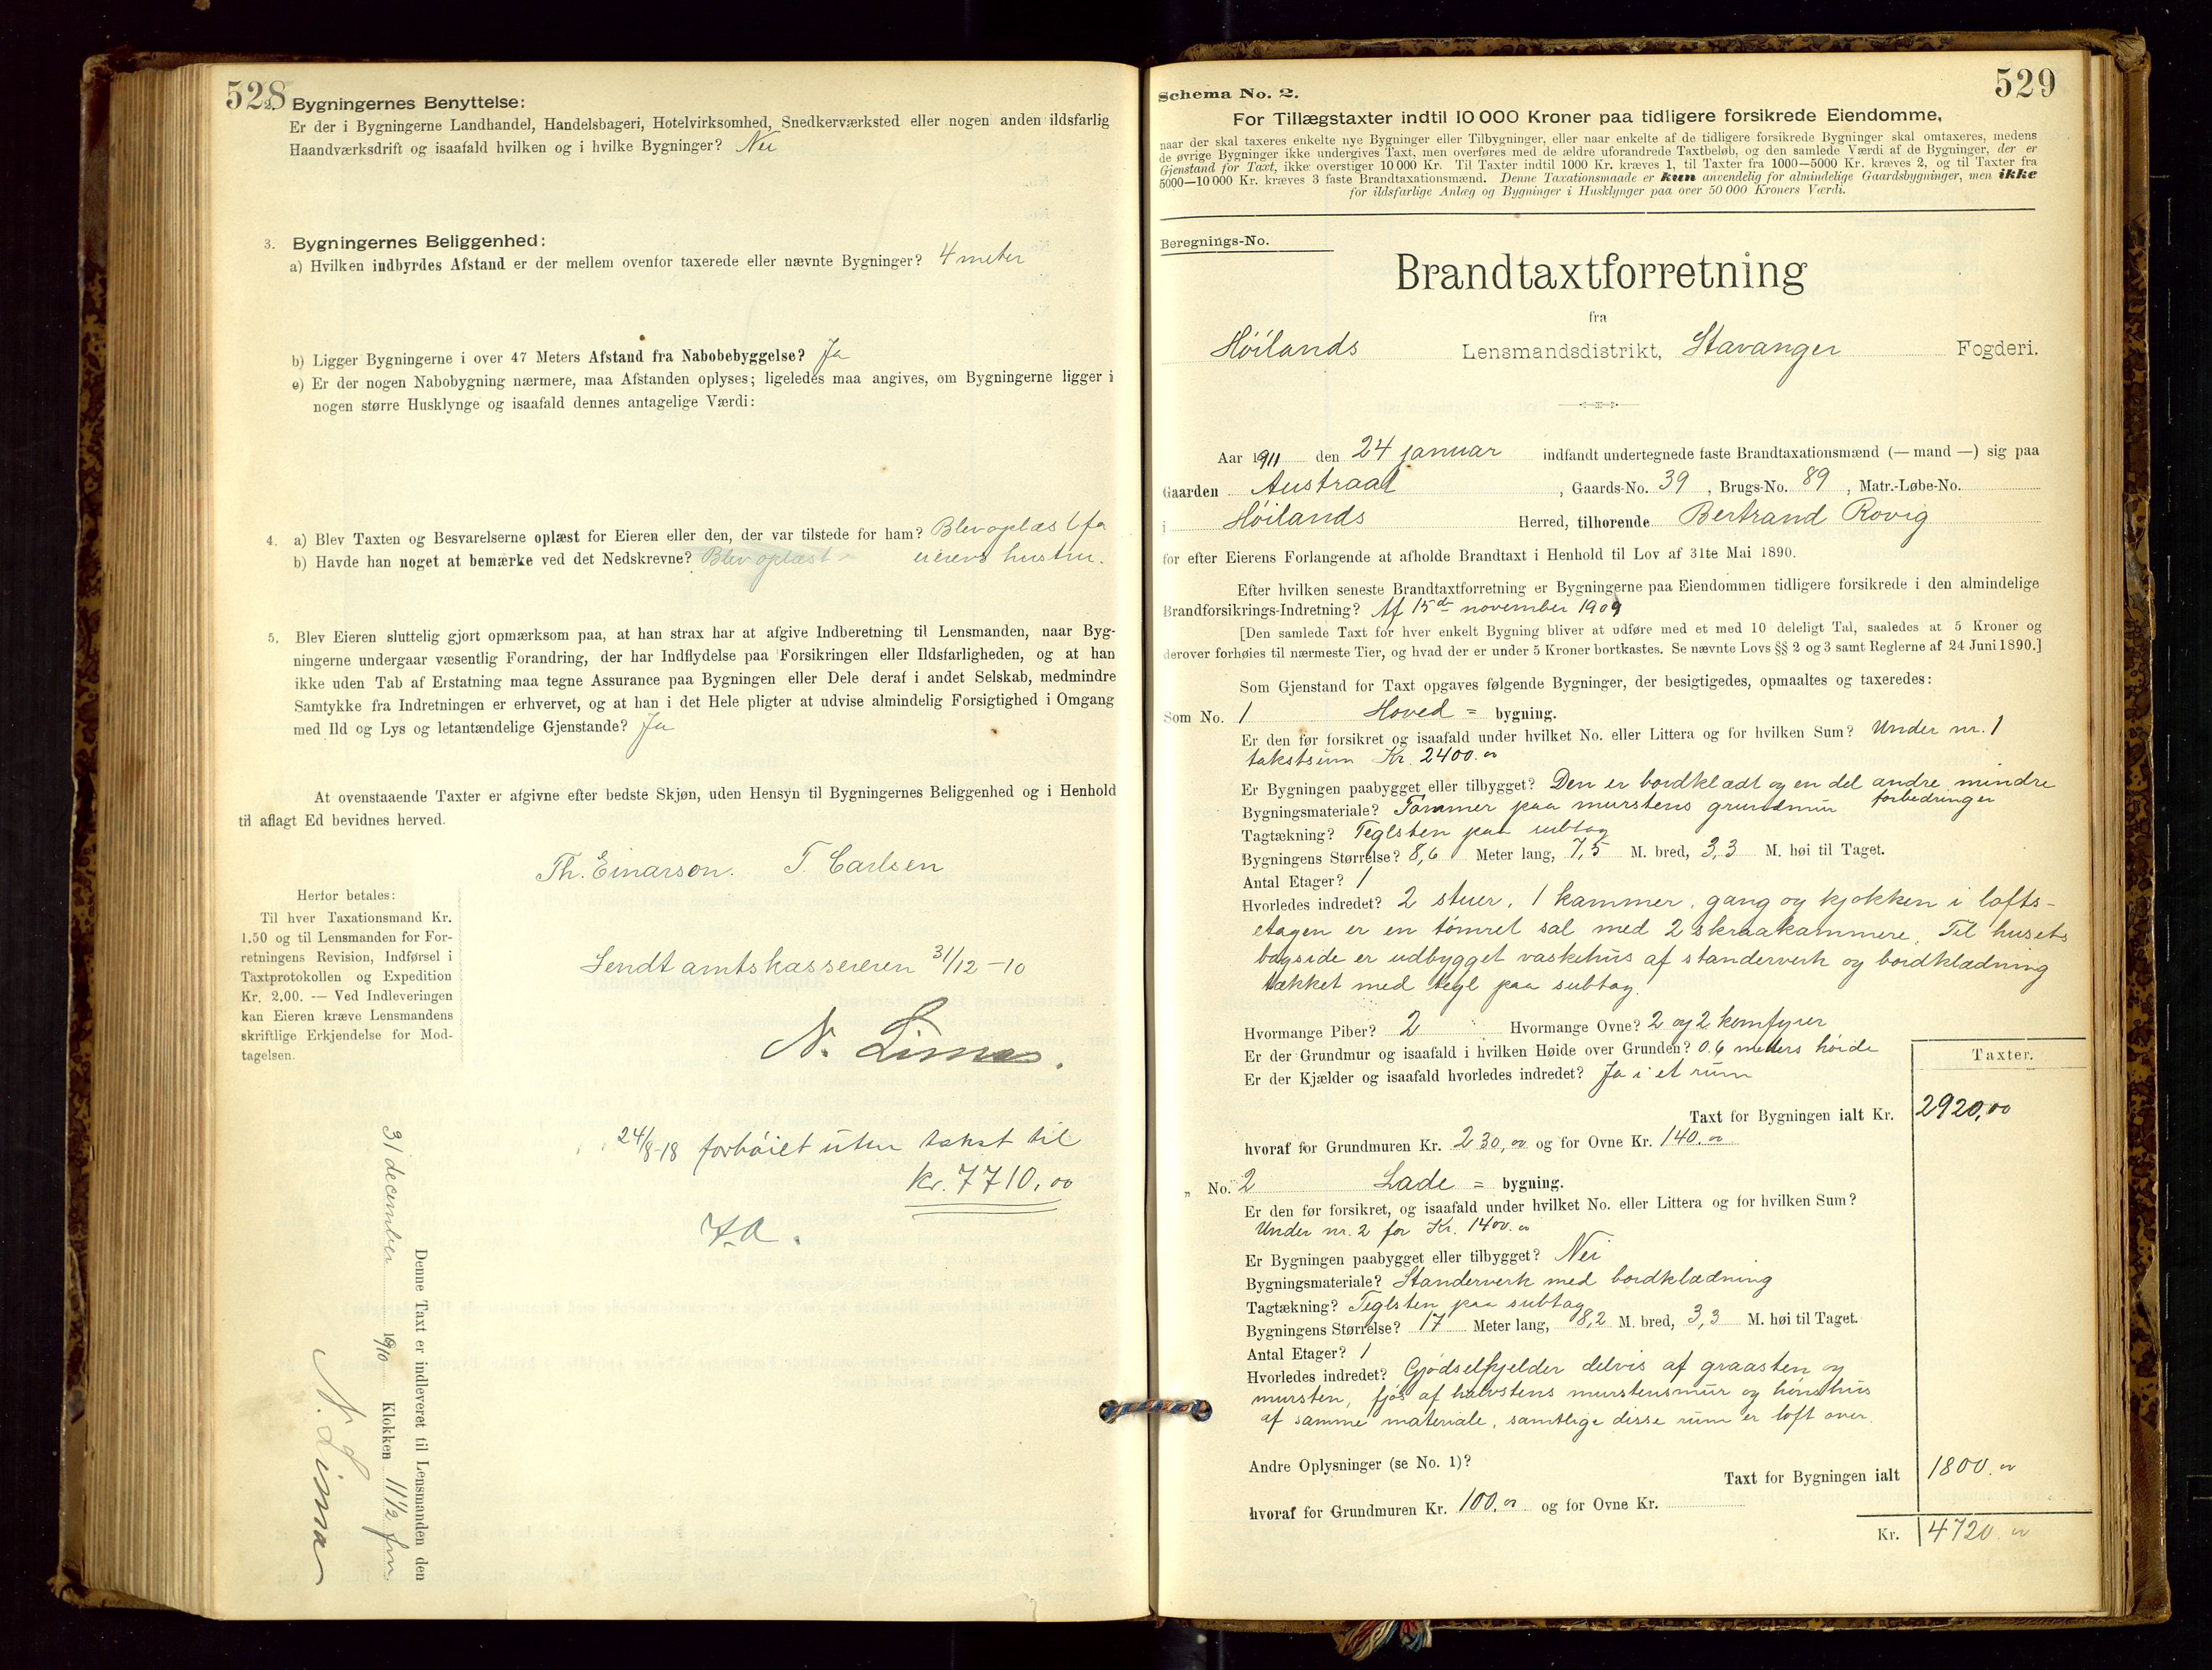 528
2. Bygningernes Benyttelse:
Er der i Bygningerne Landhandel, Handelsbageri, Hotelvirksomhed, Snedkerværksted eller nogen anden ildsfarlig
Haandværksdrift og isaafald hvilken og i hvilke Bygninger? Nei
3. Bygningernes Beliggenhed:
a) Hvilken indbyrdes Afstand er der mellem ovenfor taxerede eller nævnte Bygninger? 4 meter
b) Ligger Bygningerne i over 47 Meters Afstand fra Nabobebyggelse? Ja
c) Er der nogen Nabobygning nærmere, maa Afstanden oplyses; ligeledes maa angives, om Bygningerne ligger i
nogen større Husklynge og isaafald dennes antagelige Værdi:
4. a) Blev Taxten og Besvarelserne oplæst for Eieren eller den, der var tilstede for ham? Blev oplæst fo
b) Havde han noget at bemærke ved det Nedskrevne? Blev oplæst eierens hustru.
5. Blev Eieren sluttelig gjort opmærksom paa, at han strax har at afgive Indberetning til Lensmanden, naar Byg-
ningerne undergaar væsentlig Forandring, der har Indflydelse paa Forsikringen eller Ildsfarligheden, og at han
ikke uden Tab af Erstatning maa tegne Assurance paa Bygningen eller Dele deraf i andet Selskab, medmindre
Samtykke fra Indretningen er erhvervet, og at han i det Hele pligter at udvise almindelig Forsigtighed i Omgang
med Ild og Lys og letantændelige Gjenstande? Ja
At ovenstaaende Taxter er afgivne efter bedste Skjøn, uden Hensyn til Bygningernes Beliggenhed og i Henhold
til aflagt Ed bevidnes herved.
Th. Einarson. T. Carlsen
Herfor betales:
Til hver Taxationsmand Kr.
1.50 og til Lensmanden for For-
retningens Revision, Indførsel i
Taxtprotokollen og Expedition
Kr. 2.00. — Ved Indleveringen
kan Eieren kræve Lensmandens
skriftlige Erkjendelse for Mod-
tagelsen.
Sendt amtskassereren 31/12-10
N. Lima.
24/8-18 forhøiet uten takst til
kr. 7710,00
Denne Taxt er indleveret til Lensmanden den
31 december 1910 Klokken 11½ fm.
N. Lima
529
Schema No. 2.
For Tillægstaxter indtil 10 000 Kroner paa tidligere forsikrede Eiendomme,
naar der skal taxeres enkelte nye Bygninger eller Tilbygninger, eller naar enkelte af de tidligere forsikrede Bygninger skal omtaxeres, medens
de øvrige Bygninger ikke undergives Taxt, men overføres med de ældre uforandrede Taxtbeløb, og den samlede Værdi af de Bygninger, der er
Gjenstand for Taxt, ikke overstiger 10 000 Kr. Til Taxter indtil 1000 Kr. kræves 1, til Taxter fra 1000—5000 Kr. kræves 2, og til Taxter fra
5000—10 000 Kr. kræves 3 faste Brandtaxationsmænd. Denne Taxationsmaade er kun anvendelig for almindelige Gaardsbygninger, men ikke
for ildsfarlige Anlæg og Bygninger i Husklynger paa over 50 000 Kroners Værdi.
Beregnings-No.
Brandtaxtforretning
fra
Höilands Lensmandsdistrikt, Stavanger Fogderi.
Aar 1911 den 24 januar indfandt undertegnede faste Brandtaxationsmænd (— mand —) sig paa
Gaarden Austraat, Gaards-No. 39, Brugs-No. 89, Matr.-Løbe-No.
i Höilands Herred, tilhørende Bertrand Rovig
for efter Eierens Forlangende at afholde Brandtaxt i Henhold til Lov af 31te Mai 1890.
Efter hvilken seneste Brandtaxtforretning er Bygningerne paa Eiendommen tidligere forsikrede i den almindelige
Brandforsikrings-Indretning? Af 15de november 1909
[Den samlede Taxt for hver enkelt Bygning bliver at udføre med et med 10 deleligt Tal, saaledes at 5 Kroner og
derover forhøies til nærmeste Tier, og hvad der er under 5 Kroner bortkastes. Se nævnte Lovs §§ 2 og 3 samt Reglerne af 24 Juni 1890.]
Som Gjenstand for Taxt opgaves følgende Bygninger, der besigtigedes, opmaaltes og taxeredes:
Som No. 1 Hoved = bygning.
Er den før forsikret og isaafald under hvilket No. eller Littera og for hvilken Sum? Under nr. 1
takstsum Kr. 2400.00
Er Bygningen paabygget eller tilbygget? Den er bordklædt og en del andre mindre
forbedringer
Bygningsmateriale? Tömmer paa murstens grundmur
Tagtækning? Teglsten paa subtag
Bygningens Størrelse? 8,6 Meter lang, 7,5 M. bred, 3,3 M. høi til Taget.
Antal Etager? 1
Hvorledes indredet? 2 stuer, 1 kammer, gang og kjökken i lofts-
etagen er en tömret sal med 2 skraakammere. Til husets
bagside er udbygget vaskehus af standerverk og bordklædning
tækket med tegl paa subtag.
Hvormange Piber? 2 Hvormange Ovne? 2 og 2 komfyrer
Er der Grundmur og isaafald i hvilken Høide over Grunden? 0.6 meters höide
Er der Kjælder og isaafald hvorledes indredet? Ja i et rum
Taxter.
Taxt for Bygningen ialt Kr. 2920,00
hvoraf for Grundmuren Kr. 230,00 og for Ovne Kr. 140.00
„ No. 2 Lade = bygning.
Er den før forsikret, og isaafald under hvilket No. eller Littera og for hvilken Sum?
Under nr. 2 for Kr. 1400.00
Er Bygningen paabygget eller tilbygget? Nei
Bygningsmateriale? Standerverk med bordklædning
Tagtækning? Teglsten paa subtag
Bygningens Størrelse? 17 Meter lang, 8,2 M. bred, 3,3 M. høi til Taget.
Antal Etager? 1
Hvorledes indredet? Gjödselkjelder delvis af graasten og
mursten, fjös af halvstens murstensmur og hönshus
af samme materiale, samtlige disse rum er loft over.
Andre Oplysninger (se No. 1)?
Taxt for Bygningen ialt 1800.00
hvoraf for Grundmuren Kr. 100,00 og for Ovne Kr.
Kr. 4720.00